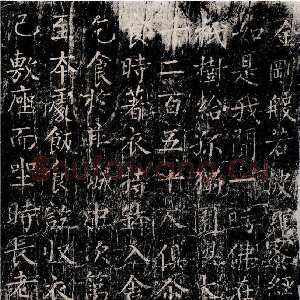 金剛般若波羅蜜經
如是我聞一時佛在
祇樹給孤獨園與大
千二百五十人俱尒
食時著衣持鉢入舍
乞食於其城中次第
至本處飯食訖收衣
已敷座而坐時長老